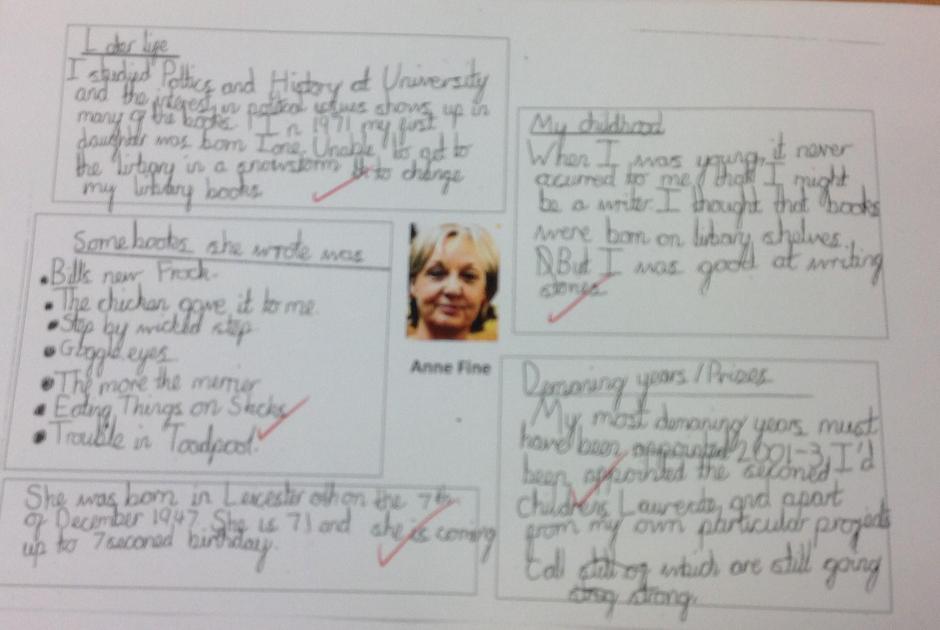 Later life
I studied Poltics and History at University
and the interest in political issues shows up in
many of the books. In 1971 my first
daughter was born Ione. Unable to get to
the lirbary in a snowstorm to change
my lirbary books
My childhood
When I was young, it never
acurred to me, that I might
be a writer. I thought that books
were born on lirbary shelves.
But I was good at writing
stories
Some books she wrote was
• Bill's new Frock.
• The chicken gave it to me.
• Step by wicked step
• Goggle eyes
• The more the merrier
• Eating Things on Sticks
• Trouble in Toadpool.
Anne Fine
Demaning years / Prizes
My most demaning years must
have been appointed 2001-3, I'd
been appointed the seconed
children's Laurerte, and apart
from my own particular projects
all which are still going
strong.
She was born in Leicester on the 7th
of December 1947. She is 71 and she is coming
up to 7seconed birthday.